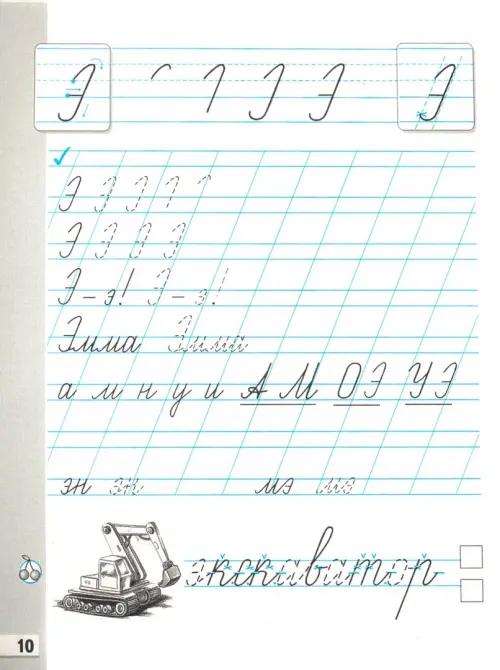 Э Э Э
Э Э
Э Э Э Э
Э – э! Э – э!
Эмма Эмма
а м н у и АМ ОЭ УЭ
эн эн мэ мэ
экскаватор
10